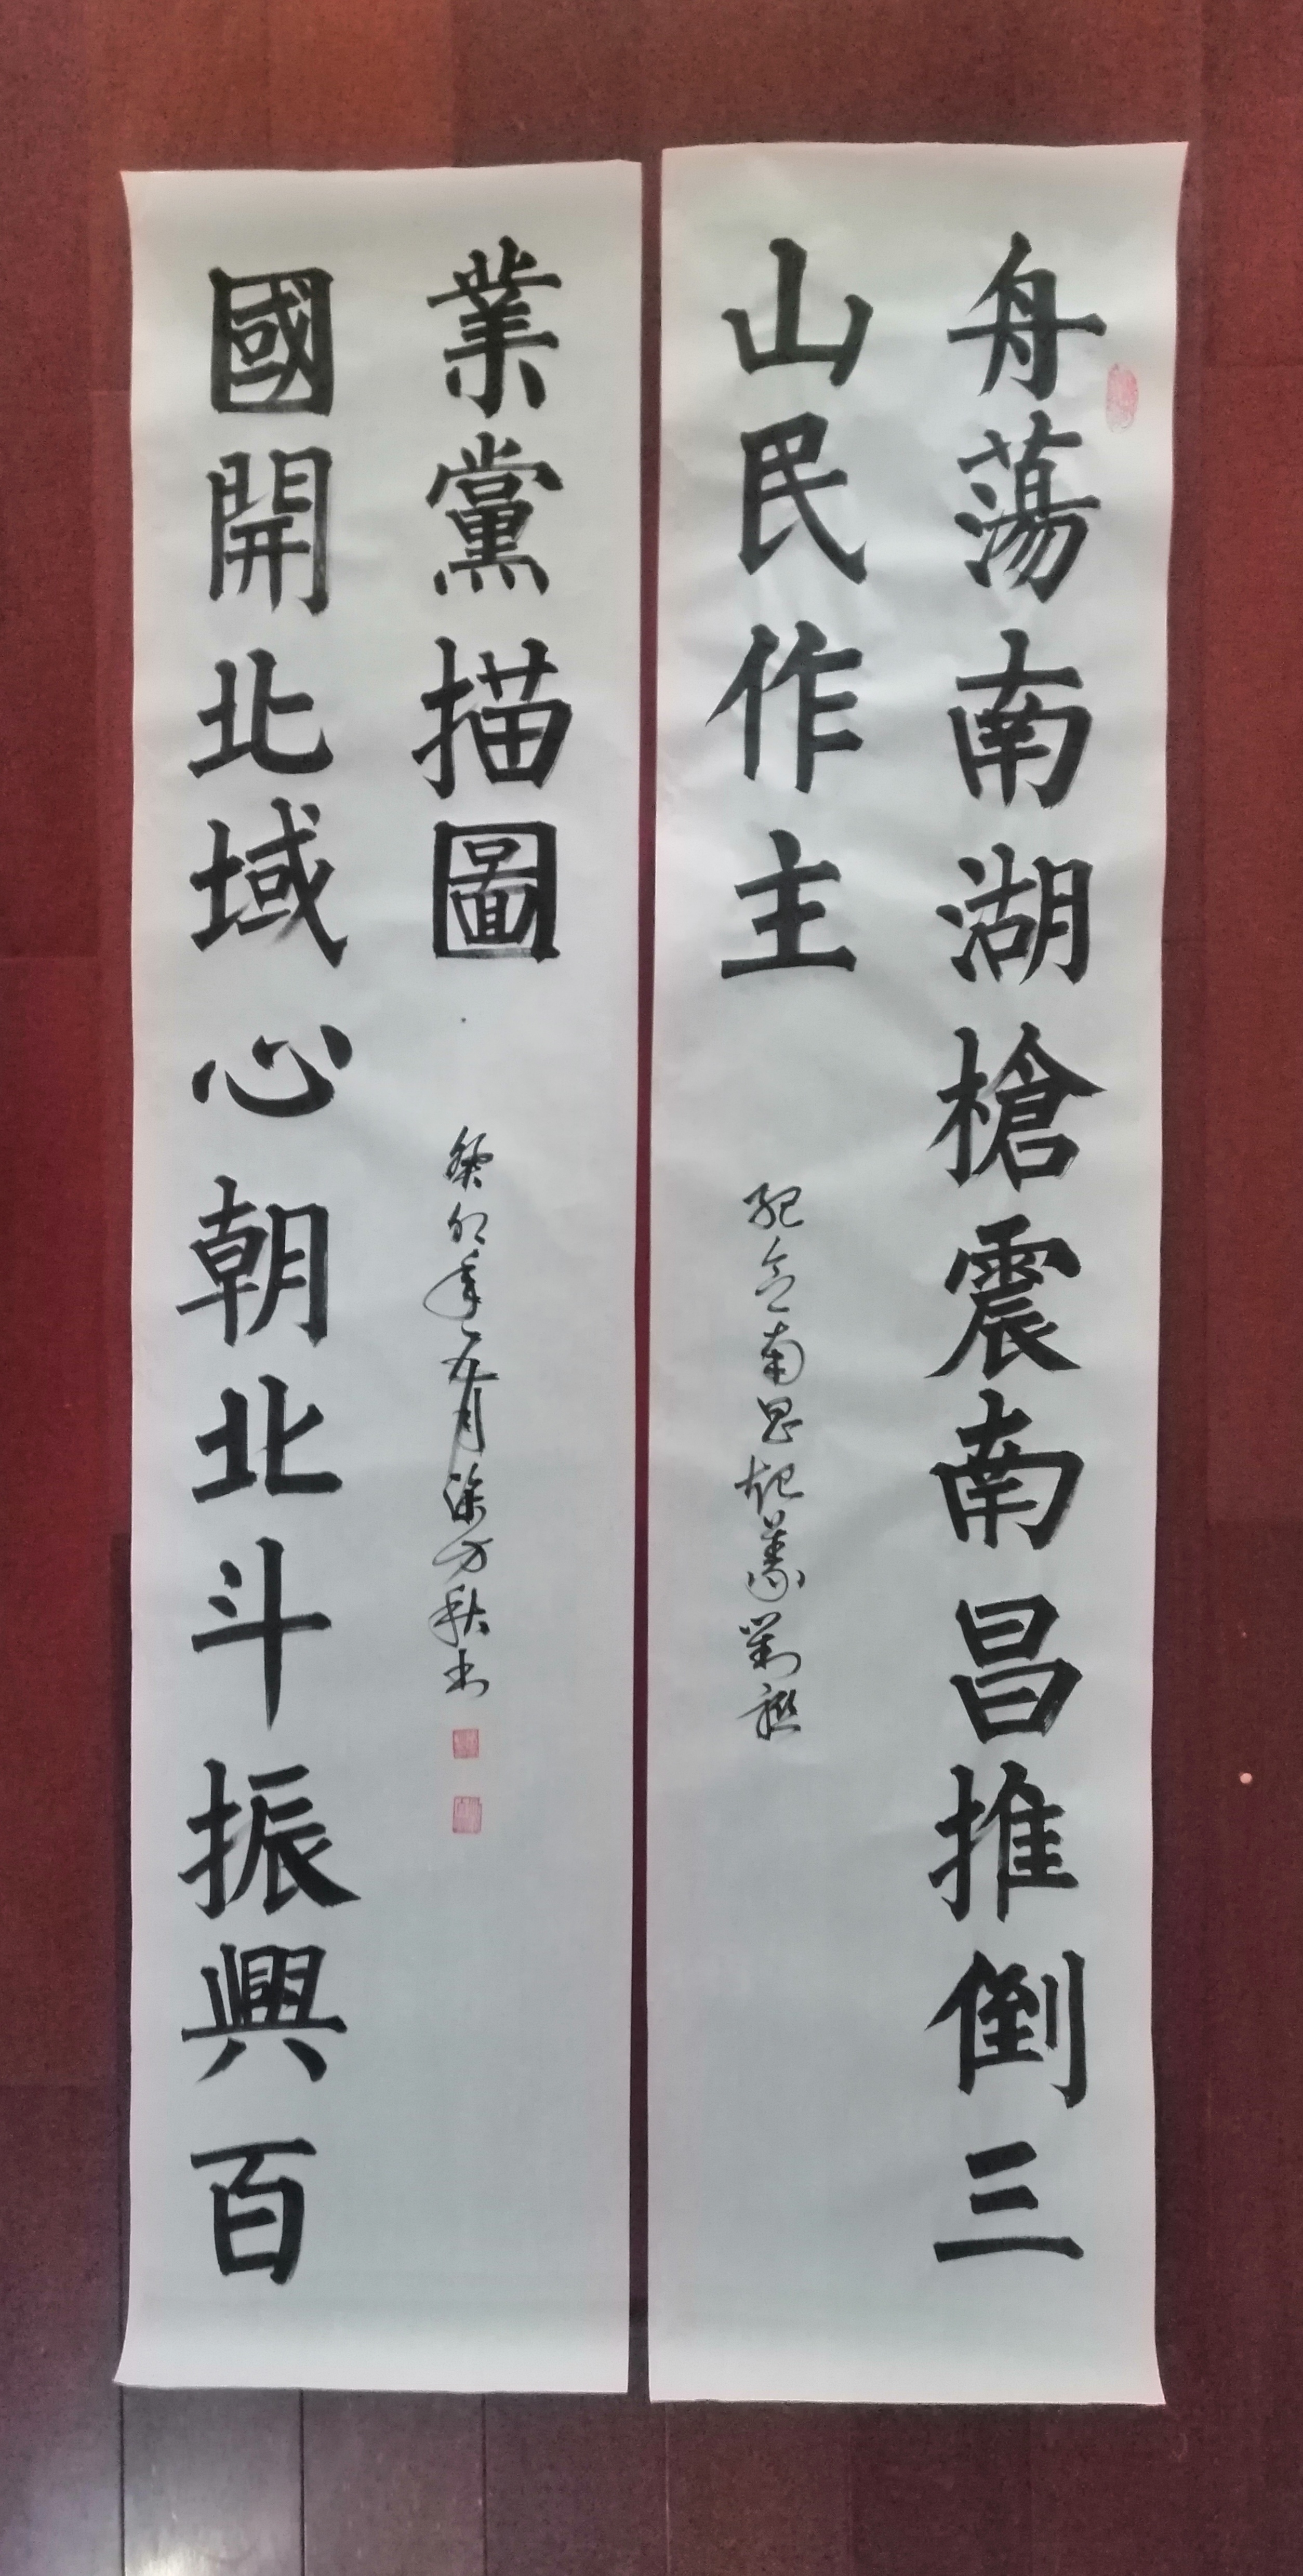 舟蕩南湖槍震南昌推倒三
山民作主
紀念南昌起義劉聯
國開北域心朝北斗振興百
業黨描圖
癸卯年九月涂方秋书